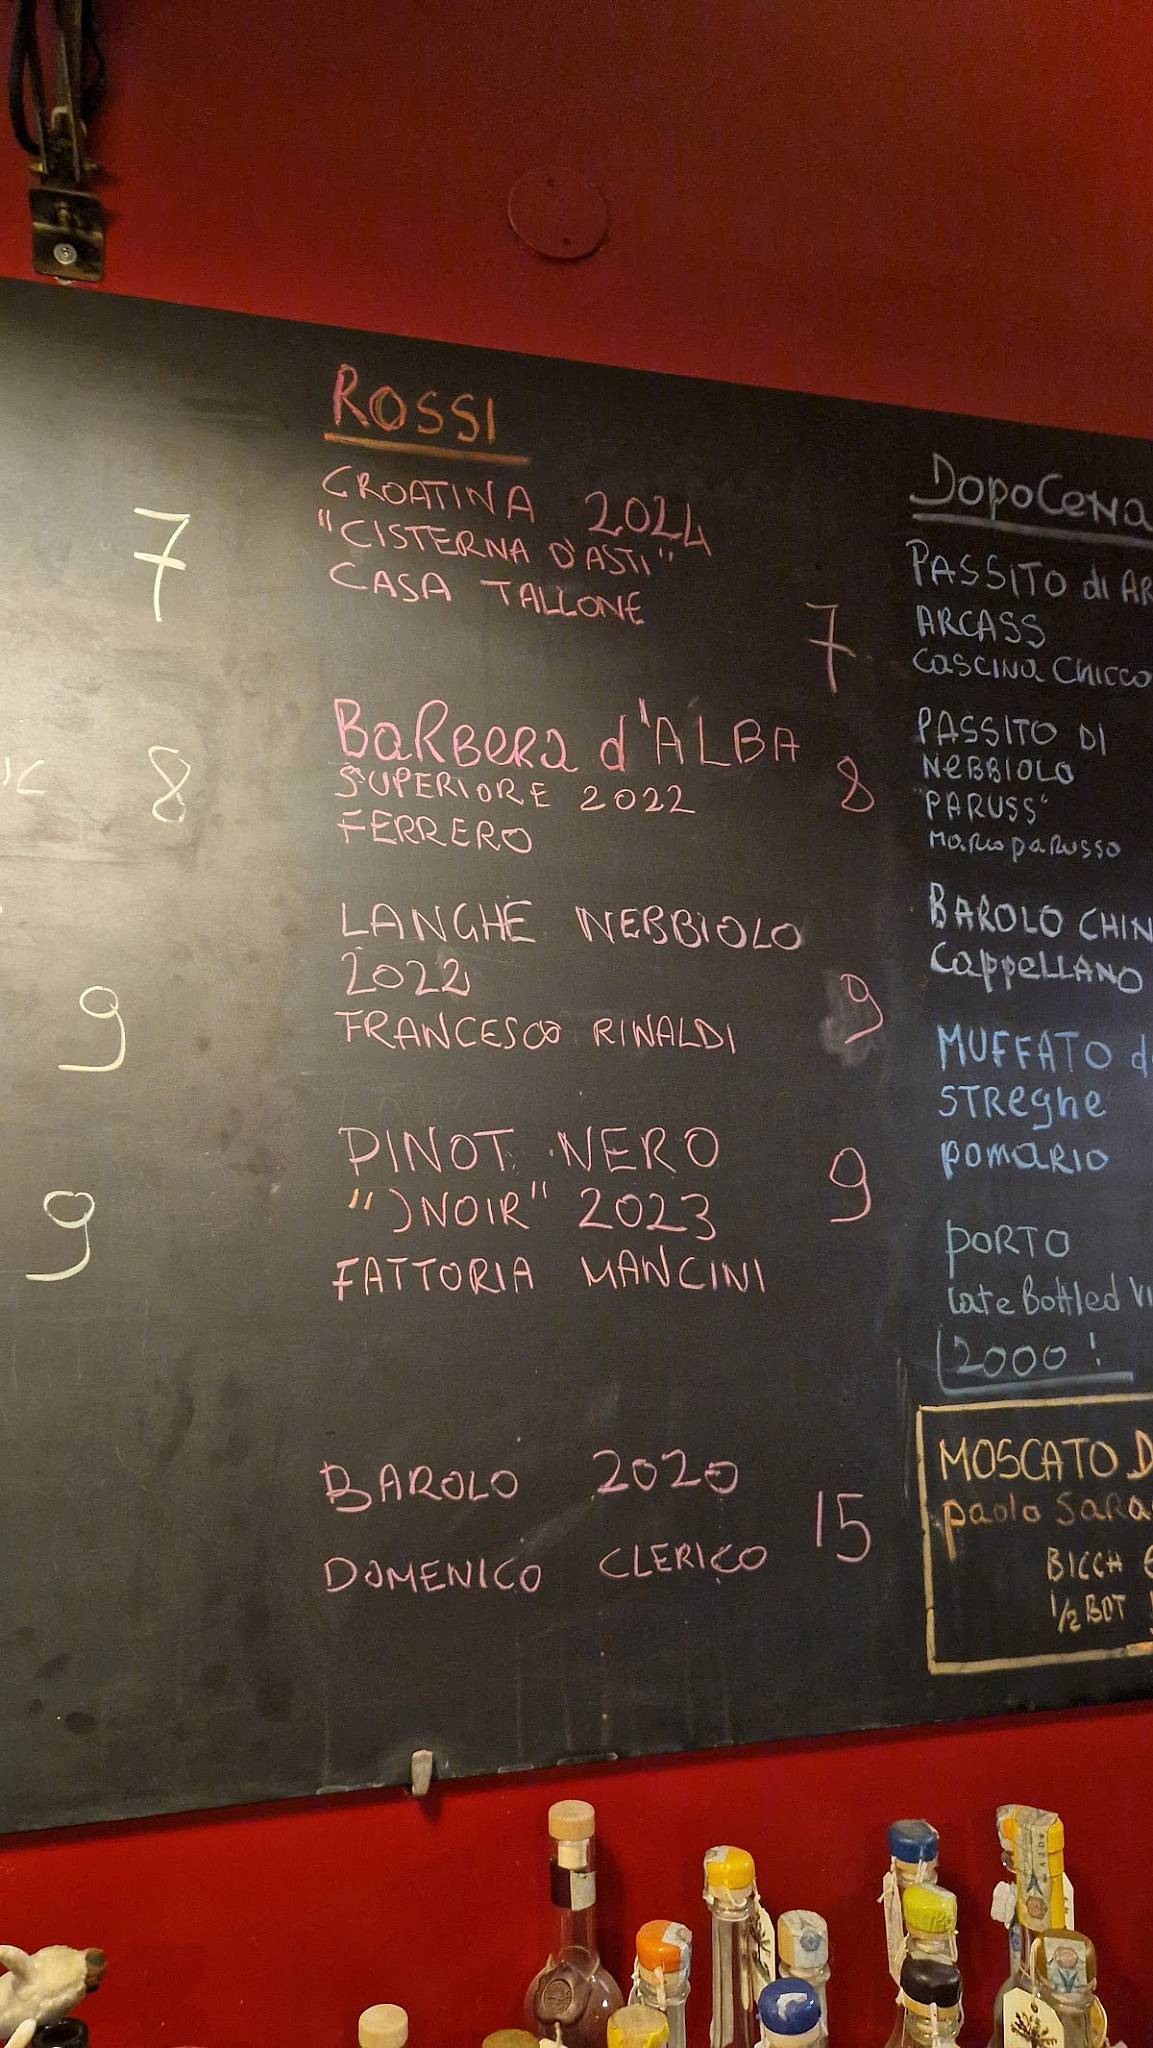 7
8
9
9
ROSSI
CROATINA 2024
"CISTERNA D'ASTI"
CASA TALLONE
7
BARBERA d'ALBA
SUPERIORE 2022
FERRERO
8
LANGHE NEBBIOLO
2022
FRANCESCO RINALDI
9
PINOT NERO
"JNOIR" 2023
FATTORIA MANCINI
9
BAROLO 2020
DOMENICO CLERICO
15
DOPOCENA
PASSITO di AR
ARCASS
CASCINA CHICCO
PASSITO DI
NEBBIOLO
"PARUSS"
MARCO PARUSSO
BAROLO CHIN
CAPPELLANO
MUFFATO d
STREGHE
POMARIO
PORTO
Late Bottled VI
2000!
MOSCATO D
paolo SARA
BICCH
1/2 BOT